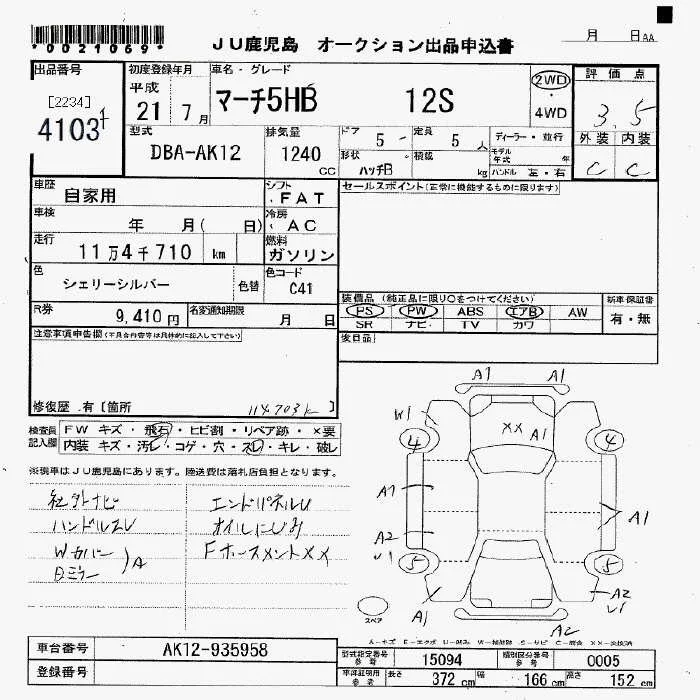 *0021069*
JU鹿児島 オークション出品申込書
月 日AA
出品番号
[2234]
4103
初度登録年月
平成
21 7月
車名・グレード
マーチ5HB 12S
2WD
・
4WD
評価点
3.5
外装 内装
C C
型式
DBA-AK12
排気量
1240
CC
ドア
5
定員
5
人
ディーラー・並行
形状
ハッチB
積載
kg
モデル
年式
年
ハンドル 左・右
車歴
自家用
シフト
FAT
車検
年 月( 日)
冷房
AC
走行
11万4千710 km
燃料
ガソリン
色
シェリーシルバー
色替
色コード
C41
R券
9,410円
名変通知期限
月 日
セールスポイント(正常に機能するものに限ります)
装備品 (純正品に限り○をつけてください)
PS PW ABS エアB AW
SR ナビ TV カワ
新車保証書
有・無
後日品
注意事項申告欄(不具合内容等は具体的に記入して下さい)
修復歴 有[箇所 ]
検査員
記入欄
FW キズ・飛石・ヒビ割・リペア跡・×要
内装 キズ・汚レ・コゲ・穴・スレ・キレ・破レ
※現車はJU鹿児島にあります。陸送費は落札店負担となります。
社外ナビ
ハンドルスレ
Wカバー
Bミラー
A
エンドパネルU
オイルにじみ
Fホースメント××
A1 A1
W1
×× A1
4 4
A1
A1
A2
U1
5 5
A1
A2
U1
A2
スペア
車台番号
AK12-935958
登録番号
型式指定番号
参考
15094
類別区分番号
参考
0005
車庫証明用
参考
長さ
372 cm
幅
166 cm
高さ
152 cm